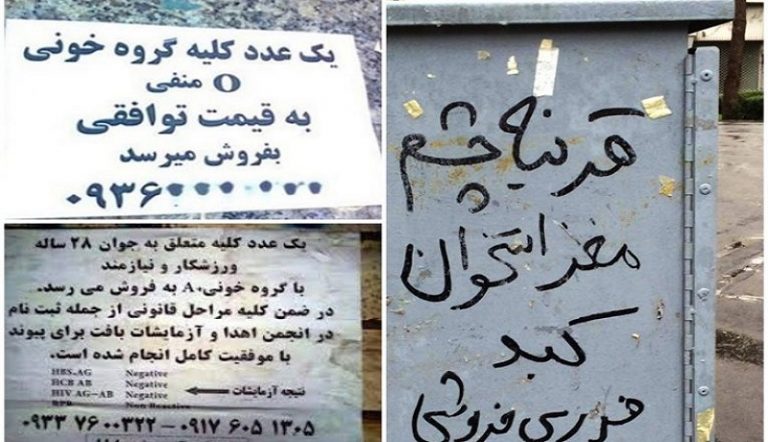 یک عدد کلیه گروه خونی
O منفی
به قیمت توافقی
بفروش میرسد
۰۹۳۶
یک عدد کلیه متعلق به جوان ۲۸ ساله
ورزشکار و نیازمند
با گروه خونی A+ به فروش می رسد.
در ضمن کلیه مراحل قانونی از جمله ثبت نام
در انجمن اهدا و آزمایشات بافت برای پیوند
با موفقیت کامل انجام شده است.
HBS.AG Negative
HCB AB Negative
HIV AG-AB Negative
RPR Non Reactive
نتیجه آزمایشات
۰۹۳۳ ۷۶۰۰۳۲۲ - ۰۹۱۷ ۶۰۵ ۱۳۰۵
قرنیه چشم
مغز استخوان
کبد
فوری فروشی